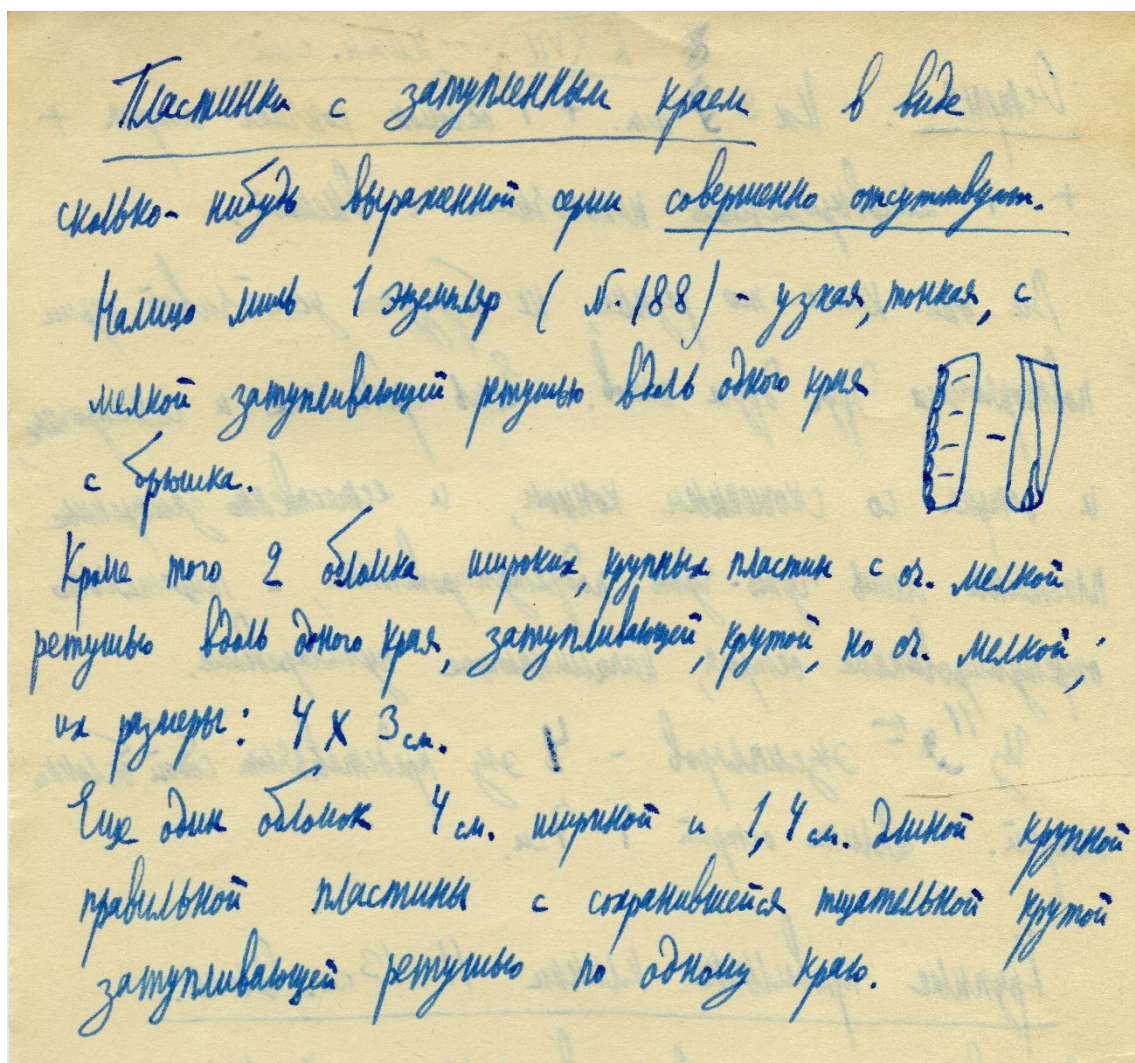 Пластинки с затупленным краем в виде
сколько-нибудь выраженной серии совершенно отсутствуют.
Налицо лишь 1 экземпляр (№ 188) - узкая, тонкая, с
мелкой затупливающей ретушью вдоль одного края
с брюшка.
Кроме того 2 обломка широких, крупных пластин с оч. мелкой
ретушью вдоль одного края, затупливающей, крутой, но оч. мелкой;
их размеры: 4 X 3 см.
Еще один обломок 4 см. шириной и 1,4 см. длиной крупной
правильной пластины с сохранившейся тщательной крутой
затупливающей ретушью по одному краю.